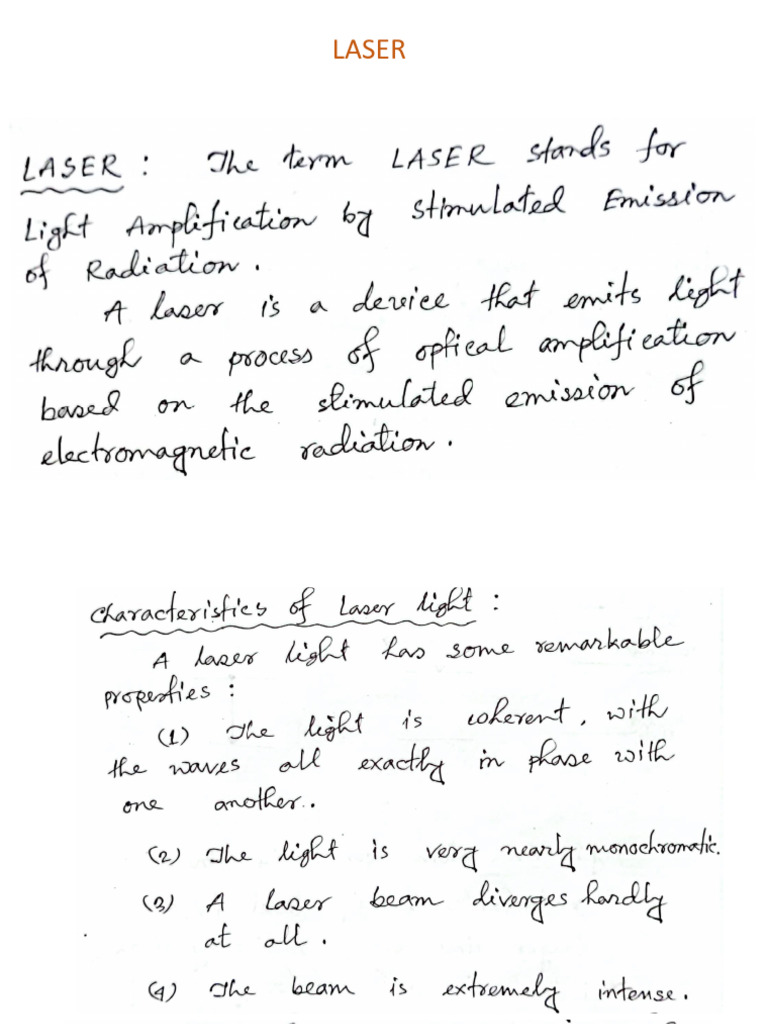 LASER
LASER : The term LASER stands for
Light Amplification by Stimulated Emission
of Radiation.
A laser is a device that emits light
through a process of optical amplification
based on the stimulated emission of
electromagnetic radiation.
Characteristics of Laser light :
A laser light has some remarkable
properties :
(1) The light is coherent, with
the waves all exactly in phase with
one another..
(2) The light is very nearly monochromatic.
(3) A laser beam diverges hardly
at all.
(4) The beam is extremely intense.